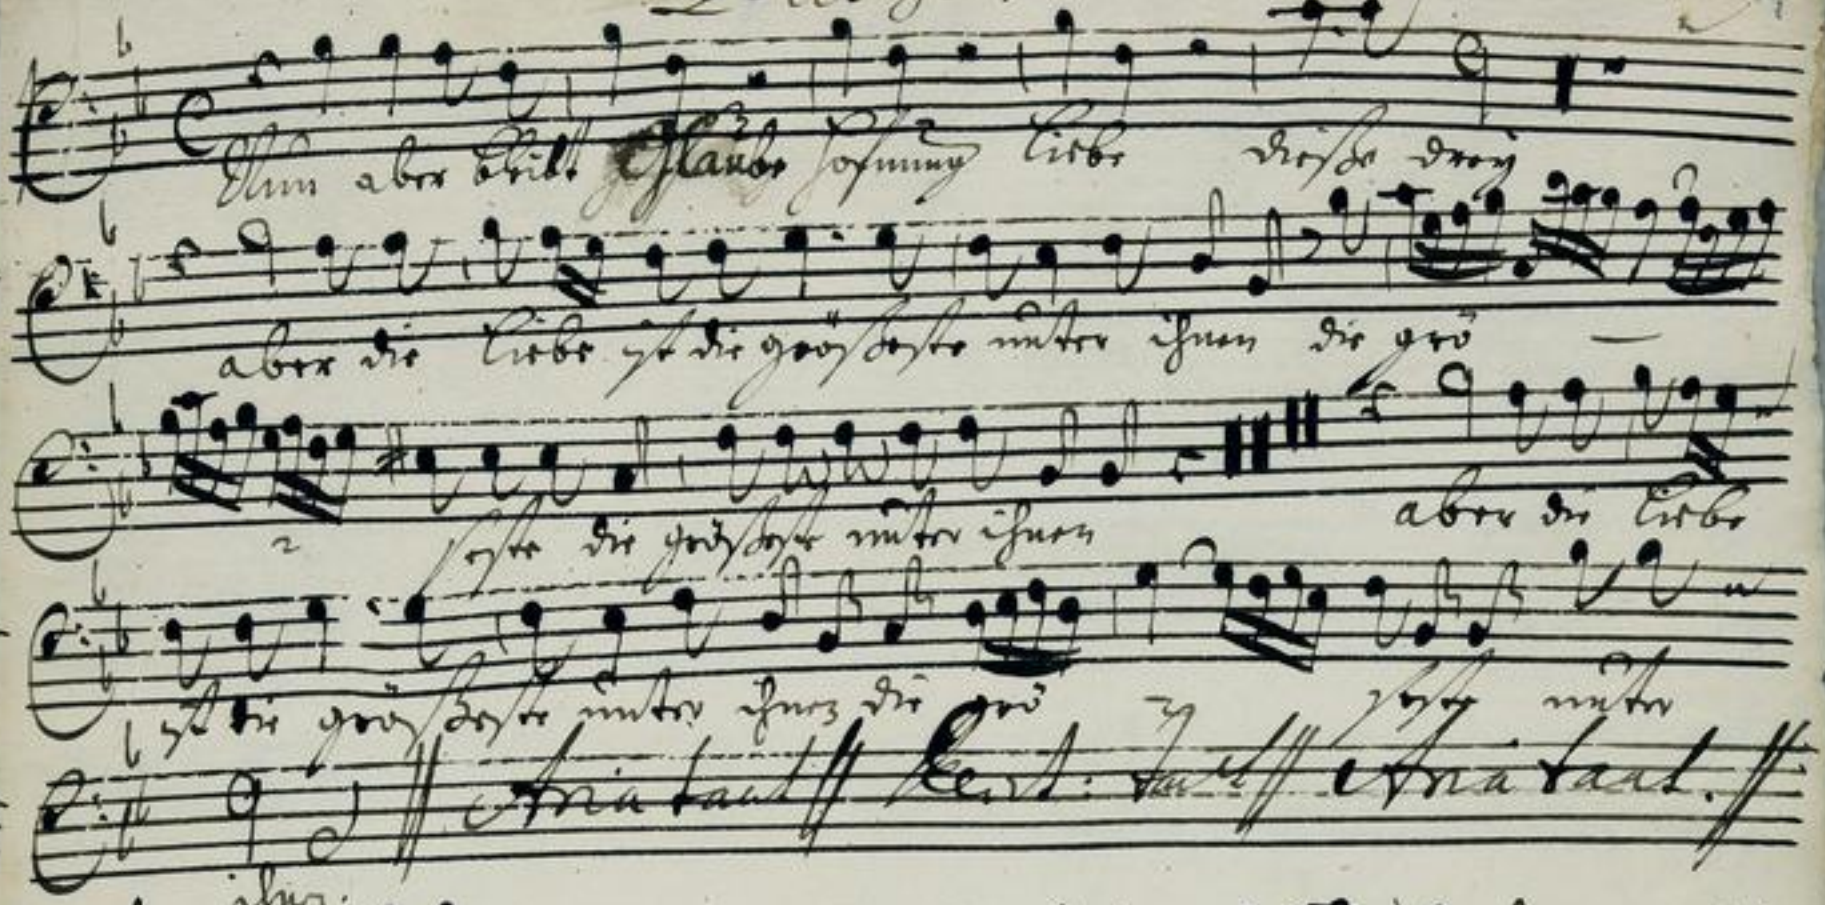 Nun aber bleibt Glaube Hofnung Liebe dieße drey
aber die Liebe ist die größeste unter ihnen die grö
seste die größeste unter ihnen aber die Liebe
ist die größeste unter ihnen die grö seste unter
Aria tacet // Recit: tacet // Aria tacet. //
ihnen.